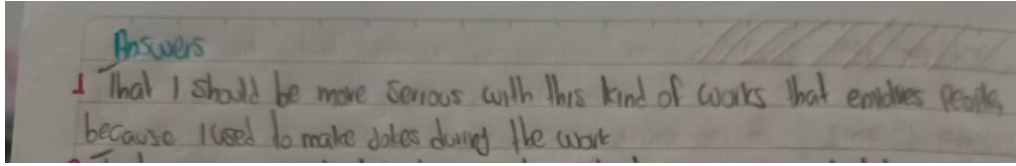 Answers
1 That I should be more serious with this kind of works that envolves people,
because I used to make jokes during the work